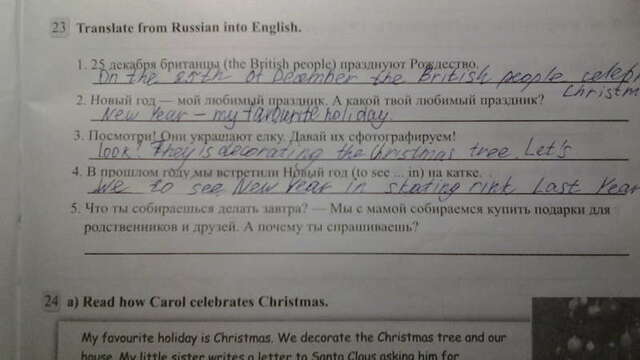 23 Translate from Russian into English.
1. 25 декабря британцы (the British people) празднуют Рождество.
On the 25th of December the British people celebr
Christm
2. Новый год — мой любимый праздник. А какой твой любимый праздник?
New Year – my favourite holiday.
3. Посмотри! Они украшают елку. Давай их сфотографируем!
look! They is decorating the Christmas tree. Let's
4. В прошлом году мы встретили Новый год (to see ... in) на катке.
We to see New Year in skating rink Last Year
5. Что ты собираешься делать завтра? — Мы с мамой собираемся купить подарки для
родственников и друзей. А почему ты спрашиваешь?
24 a) Read how Carol celebrates Christmas.
My favourite holiday is Christmas. We decorate the Christmas tree and our
house. My little sister writes a letter to Santa Claus asking him for